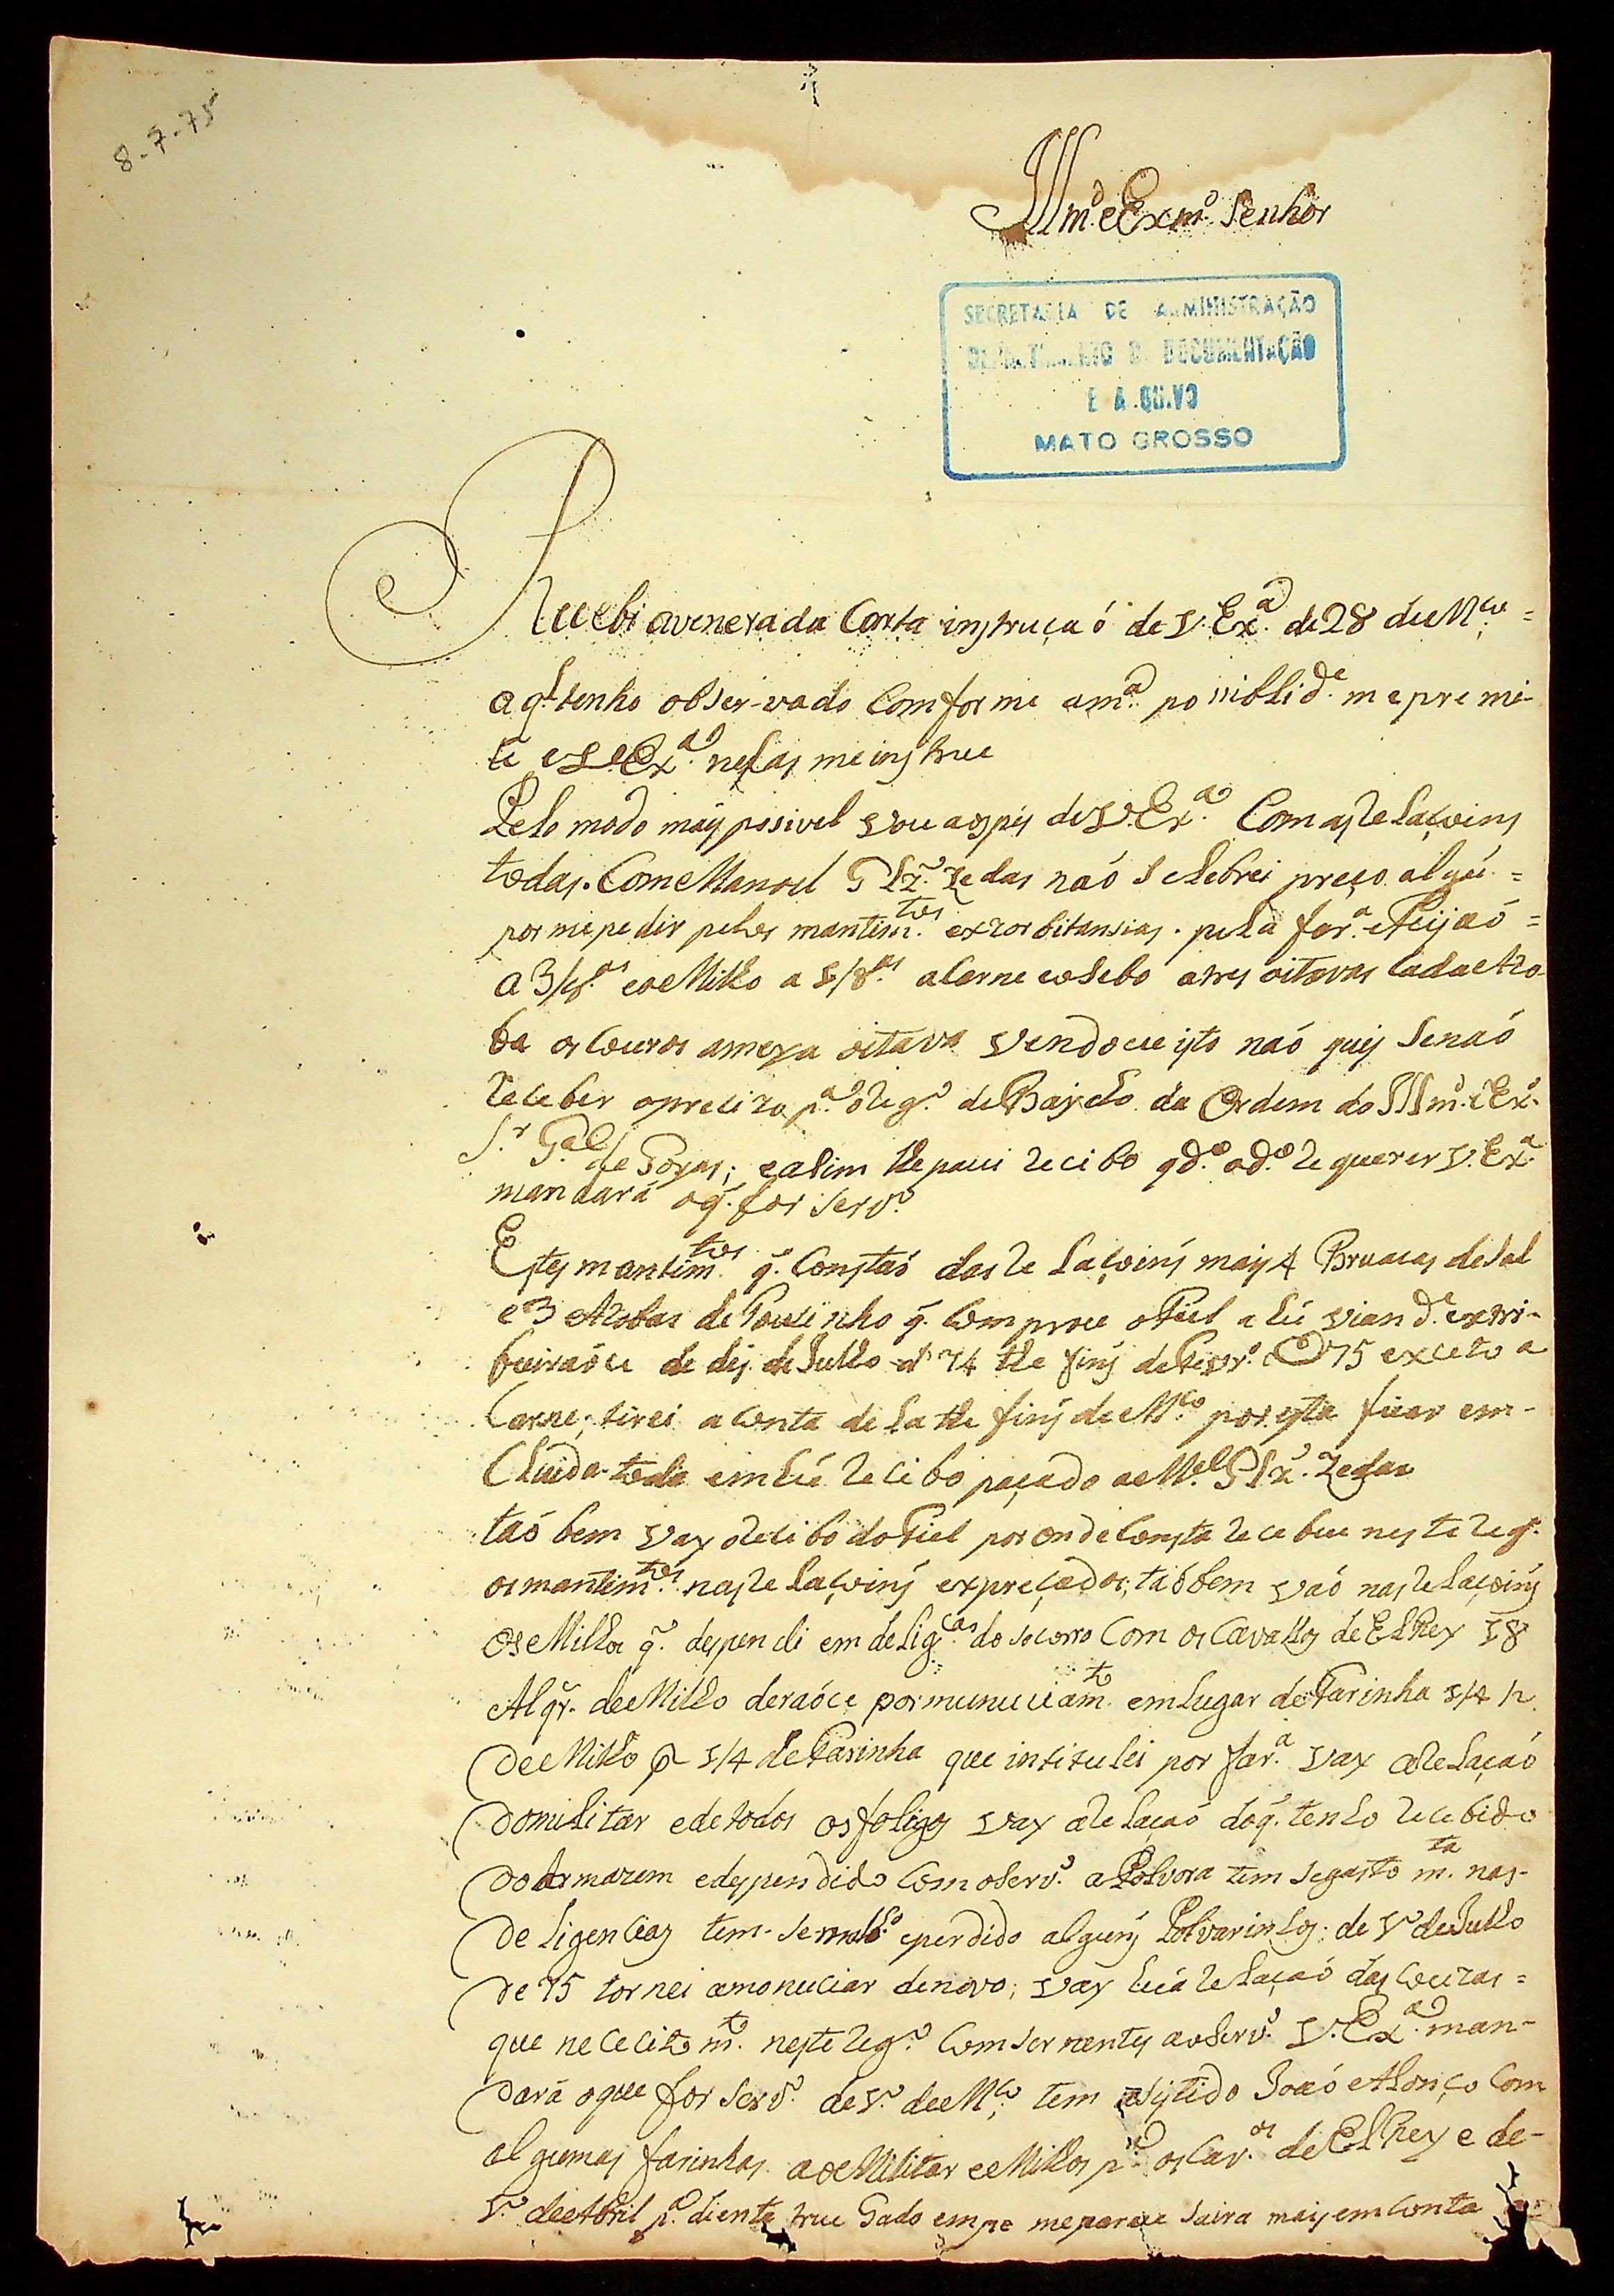 8-7-75
Illm.º e Exm.º Senhor
SECRETARIA DE ADMINISTRAÇÃO
DEPARTAMENTO DE DOCUMENTAÇÃO
E ARQUIVO
MATO GROSSO
Recebi avenerada Carta instruçaó de V. Ex.ª de 28 de M.ço =
a q.l tenho observado Comforme am.ª posiblid.e mepremi-
te e V. Ex.ª nesas meinstrue
Pelo modo mais posivel vou aospes de V. Ex.ª Com asrelaçoins
todas. Com Manoel Glz.' Zedas naó Selebrei preço algú =
por mepedir pelos mantim.tos exzorbitansias. pela far.ª e Feijaó =
a 3/8.as eo Milho a 1/8.as a Carne eo Sebo atres oitavas Cada Aro
ba os Couros ameya oitava vendoeu isto naó quis Senaó
receber opreciza p.ª o reg.º de da Ordem do Illm.º e Ex.º
S.r G.al de Goyas; easim lhe pacei recibo q.do o d.º requerer V. Ex.ª
mandará oq. for Serv.º
Estes mantim.tos q. Constaó dasrelaçoins mais 4 Bruacas deSal
e 3 Arobas de Toucinho q. Comprou o Fiel a hú viand.e extri-
buiraóce de des de Julho d' 74 the fins de Fevr.º D 75 exceto a
Carne; tirei a Conta dela the fins de M.ço por esta ficar em-
Cluida toda em hú recibo paçado a M.el Glz.' Zedas
taó bem vay orecibo do Fiel por onde Consta recebeu neste reg.º
os mantim.tos nasrelaçoins expreçados; taóbem vaó nasrelaçoins
Os Milhos q. despendi em delig.cas do socorro Com os Cavallos de El Rey 18
Alqr. de Milho deraóce por municiam.to em lugar de Farinha 1/4
de Milho p 1/4 de Farinha que intitulei por far.ª vay arelaçaó
do militar e de todos os vay arelaçaó doq. tenho recebido
do Armazem edespendido Com oServ.º a Polvora tem segasto m.ta nas-
deligencias tem-se eperdido alguns Polvarinhos: de 1.º de Julho
de 75 tornei amoniciar denovo; vay húa relaçaó das Couzas =
que nececito m.to neste reg.º Comsernentes aoServ.º V. Ex.ª man-
dará oque for Serv.º de 1.º de M.ço tem asistido Joaó Afonço Com
algumas farinhas ao Militar e Milhos p.ª os Cav.os de El Rey e de-
1.º de Abril p.ª diente true Gado empe meparece Saira mais em Conta